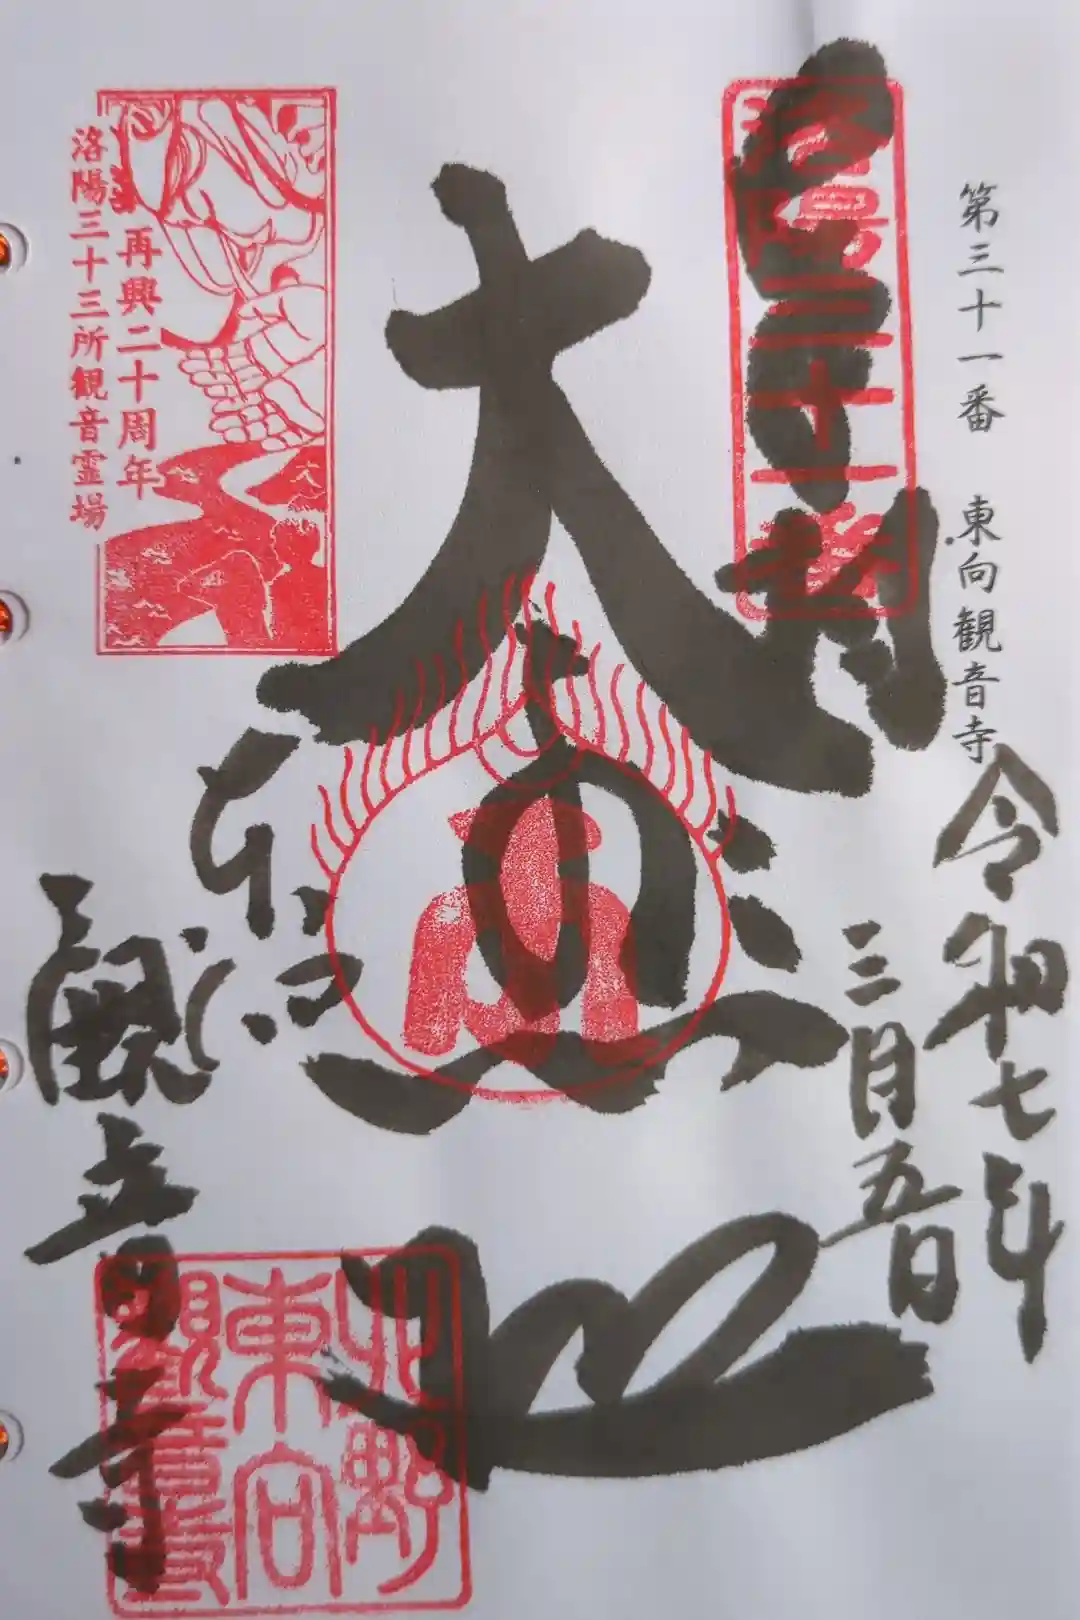 第三十一番 東向観音寺
令和七年
三月五日
奉拝
洛陽三十一番
大悲殿
東向
観音寺
北野
東向
観音寺
再興二十周年
洛陽三十三所観音霊場